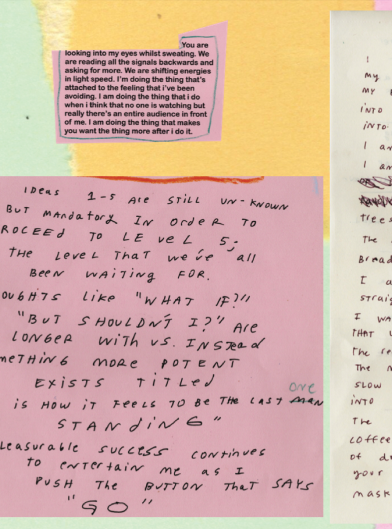 You are
looking into my eyes whilst sweating. We
are reading all the signals backwards and
asking for more. We are shifting energies
in light speed. I'm doing the thing that's
attached to the feeling that i've been
avoiding. I am doing the thing that i do
when i think that no one is watching but
really there's an entire audience in front
of me. I am doing the thing that makes
you want the thing more after i do it.
IDeas 1-5 ARE STILL UN-KNOWN
BUT MANdatorY IN OrdeR TO
ROCEEd TO LEveL 5-
THE LeveL THAT we've all
BEEN WAITING FOR.
OUGHTS Like "WHAT IF?"
"BUT SHOULDN'T I?" ARE
LONGER WITH US. INStead
METHING MORE POTENT
EXISTS TITLed
one
is HOW IT FEELS TO BE THE LAST MAN
STANdING"
LEASUrable SUCCESS CONTINUES
TO ENTERTAIN ME AS I
PUSH THE BUTTON THAT SAYS
"GO"
I
my
MY
INTO
INTO
I an
I an
trees
The
Bread
I a
STraig
I wa
THAT
The re
The N
SLOW
INTO
The
COFFee
OF d
your
mask